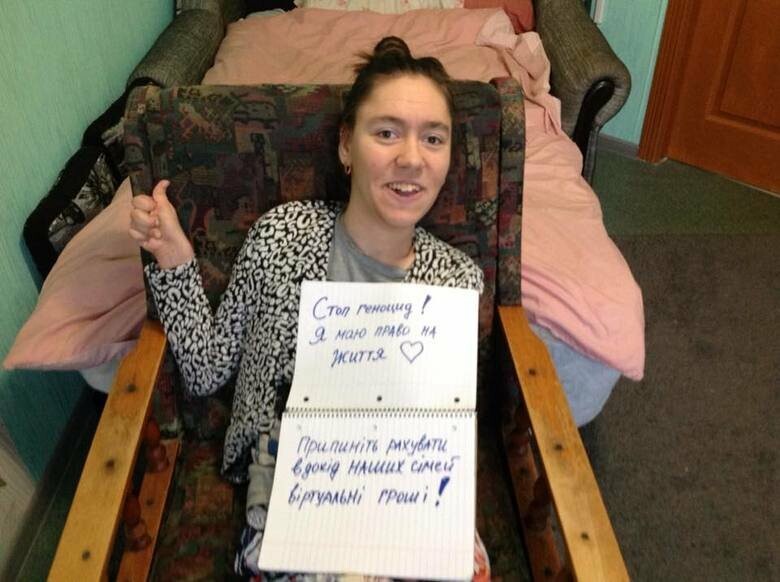 Стоп геноцид!
Я маю право на
життя
Припиніть рахувати
в дохід наших сімей
віртуальні гроші!